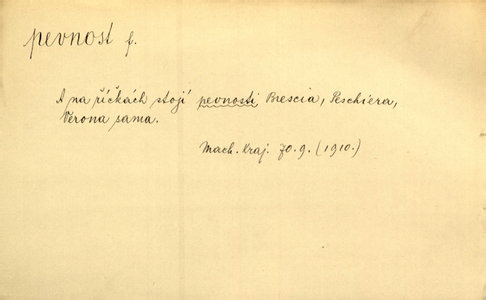 pevnost f.
A na říčkách stojí pevnosti Brescia, Peschiera,
Verona sama.
Mach. Kraj. 70.9. (1910.)